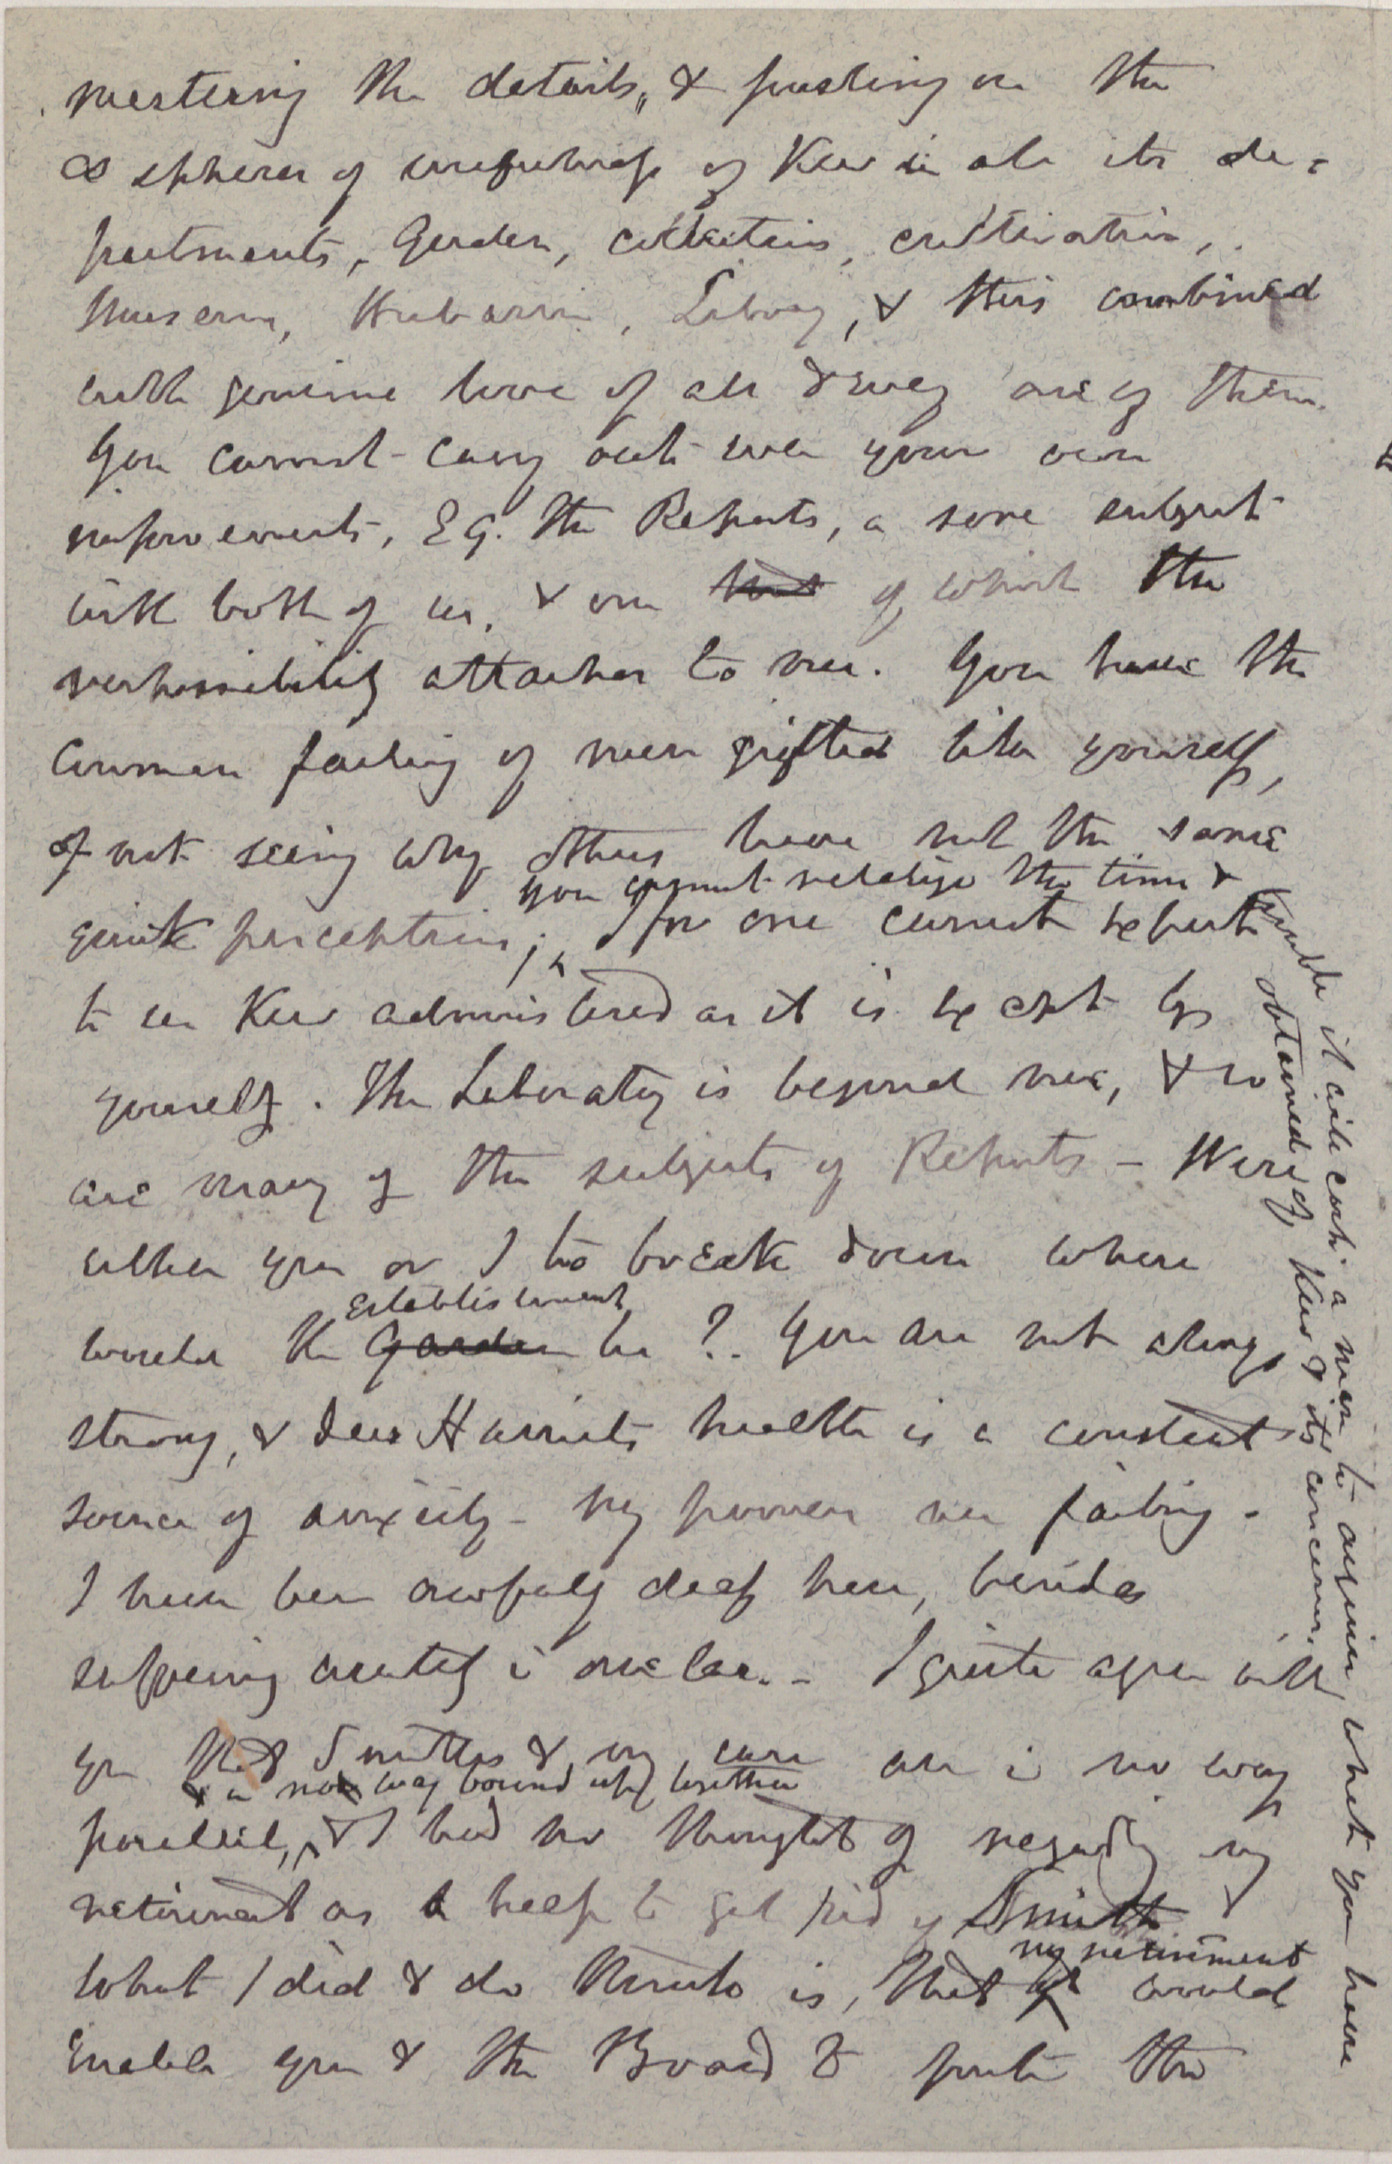 mastering the details, & pushing on the
spheres of usefulness of Kew in all its de-
partments, Garden, collections, cultivation,
Museum, Herbarium, Library, & this combined
with genuine love of all & every one of them.
You cannot carry out even your own
improvements, E G. the Reports, a sore subject
with both of us, & one of which the
responsibility attaches to me. You have the
common failing of men gifted like yourself,
of not seeing why others have not the same
quick perceptions; you cannot realize the time & trouble it will cost a man to acquire what you have obtained of Kew & its concerns. I for one cannot expect
to see Kew administered as it is except by
yourself. The Laboratory is beyond me, & so
are many of the subjects of Reports — Were
either you or I to break down where
would the Garden establishment be? You are not always
strong, & dear Harriet's health is a constant
source of anxiety — My powers are failing —
I have been awfully deaf here, besides
suffering acutely in one ear. — I quite agree with
you that Smith's & my case are in no way
parallel, & in no way bound up together & I had no thought of regarding my
retirement as a help to get rid of Smith
What I did & do think is, that my retirement would
enable you & the Board to put the